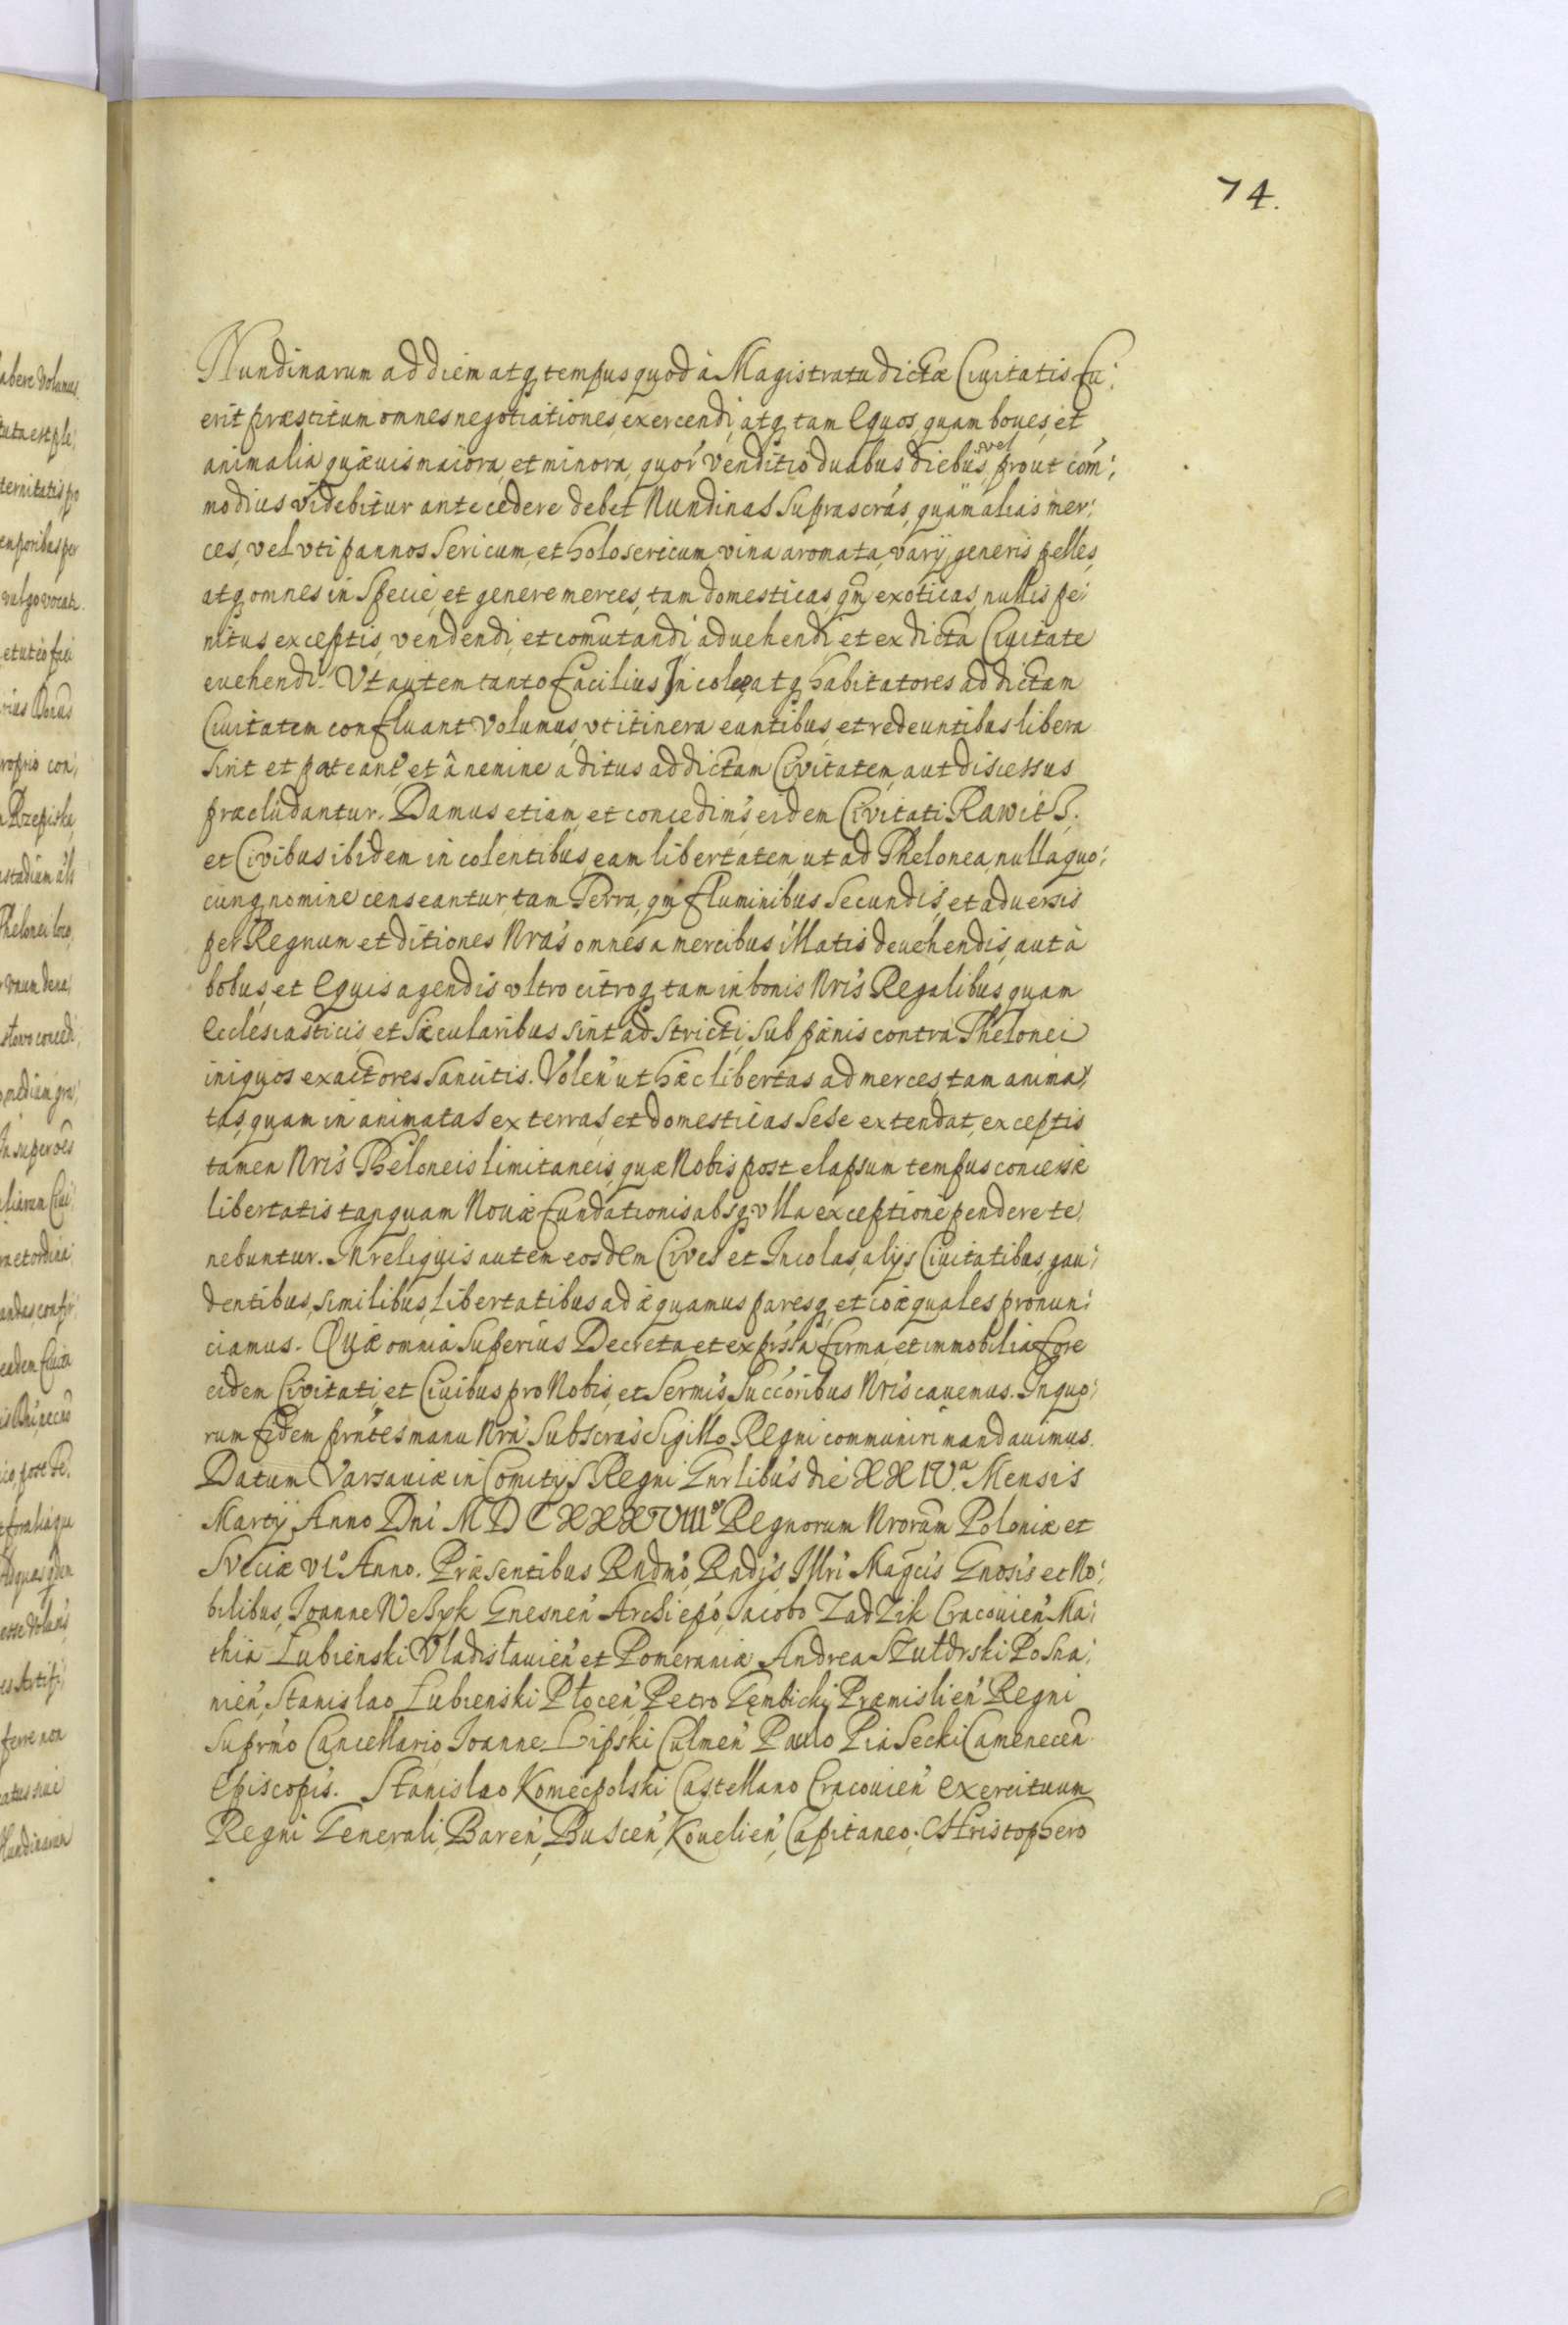 74.
Nundinarum ad diem atq tempus quod à Magistratu dictæ Ciuitatis fu:
erit præstitum omnes negotiationes, exercendi, atq tam Equos, quam boues, et
animalia quæuis maiora, et minora, quor' venditio duabus diebus, vel prout com:
modius videbitur antecedere debet Nundinas suprascras, quàm alias mer:
ces, vel vti pannos sericum, et holosericum, vina aromata, varij generis pelles,
atq omnes in specie, et genere merces, tam domesticas, qm exoticas, nullis pe:
nitus exceptis, vendendi, et comutandi, aduehendi et ex dicta Ciuitate
euehendi. Vt autem tanto facilius Incolæ atq habitatores ad dictam
Ciuitatem confluant volumus, vt itinera euntibus, et redeuntibus libera
sint et pateant, et â nemine aditus ad dictam Civitatem, aut discessus
præcludantur. Damus etiam, et concedim's eidem Civitati Rawicz.
et Civibus ibidem incolentibus, eam libertatem, ut ad Thelonea, nulla quo:
cunq nomine censeantur, tam Terra, qm fluminibus secundis, et aduersis
per Regnum et ditiones Nra's omnes a mercibus illatis deuehendis, aut à
bobus, et Equis agendis vltro citroq tam in bonis Nri's Regalibus, quam
Ecclesiasticis et Sæcularibus sint adstricti, sub pænis contra Thelonei
iniquos exactores sancitis. Volen' ut hæc libertas ad merces, tam anima:
tas, quam inanimatas exterras, et domesticas sese extendat, exceptis
tamen Nri's Theloneis limitaneis, quæ Nobis post elapsum tempus concessæ
libertatis tanquam Nouæ fundationis absq vlla exceptione pendere te:
nebuntur. In reliquis autem eosdem Cives et Incolas, alijs Ciuitatibus, gau:
dentibus, similibus, libertatibus adæquamus paresq, et coæquales pronun:
ciamus. Quæ omnia superius Decreta et exprssa firma, et immobilia fore
eidem Civitati, et Ciuibus pro Nobis, et Sermi's Succoribus Nri's cauemus. In quo:
rum fidem prntes manu Nra' Subscra's Sigillo Regni communiri mandauimus.
Datum Varsauiæ in Comitijs Regni Gnrlibus die XXIV.a Mensis
Martij Anno Dni MDCXXXVIIIo Regnorum Nrorum Poloniæ et
Sveciæ VIo Anno. Præsentibus Rndmo, Rndis Illri Magcis Gnosis et No:
bilibus, Joanne Wężyk Gnesnen' Archiepo', Jacobo Zadzik Cracouien', Ma:
thia Łubienski Vladislauien' et Pomeraniæ Andrea Szułdrski Posna:
nien', Stanislao Łubienski Płocen' Petro Gembicki, Præmislien' Regni
Suprmo Cancellario, Joanne Lipski Culmen' Paulo Piasecki Camenecen
Episcopis. Stanislao Koniecpolski Castellano Cracouien' exercituum
Regni Generali, Baren', Buscen', Kouelien', Capitaneo. Christophero